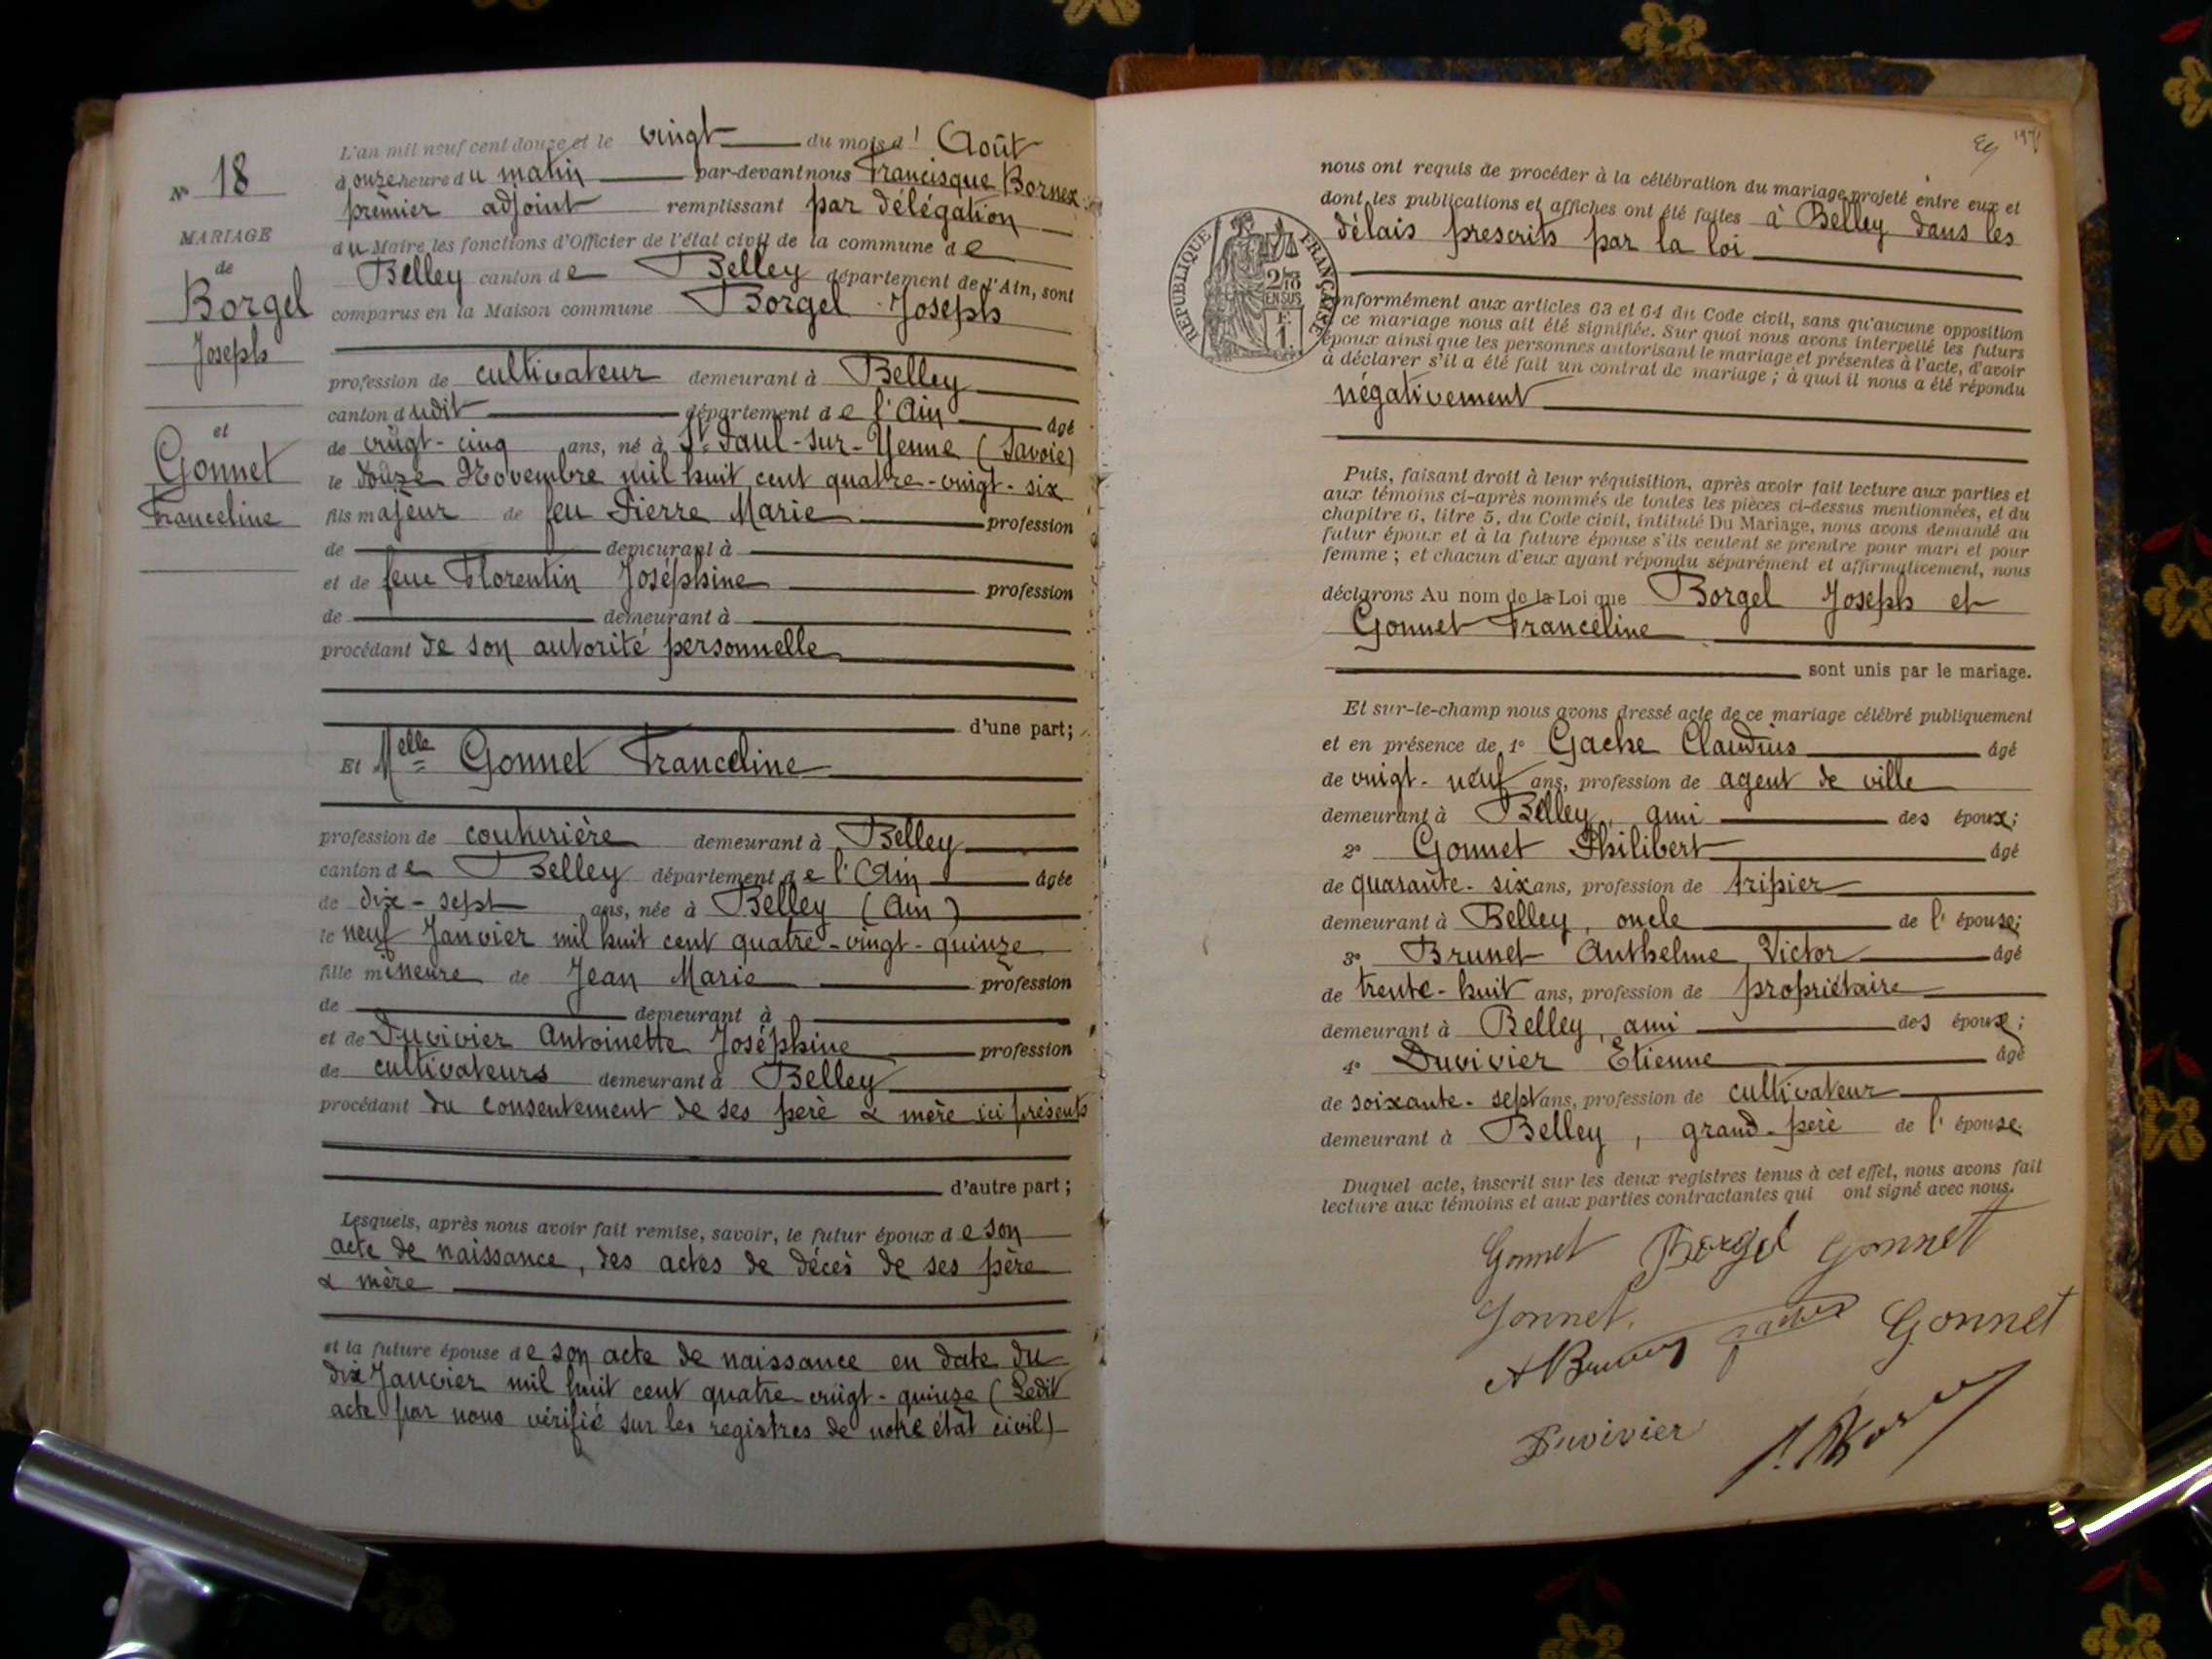 N° 18
MARIAGE
de
Borgel
Joseph
et
Gonnet
Franceline
L'an mil neuf cent douze et le vingt du mois d' Août
à onze heure du matin par-devant nous Francisque Bornex
premier adjoint remplissant par délégation
du Maire les fonctions d'Officier de l'état civil de la commune de
Belley canton de Belley département de l'Ain, sont
comparus en la Maison commune Borgel Joseph
profession de cultivateur demeurant à Belley
canton dudit département de l'Ain âgé
de vingt-cinq ans, né à St-Paul-sur-Yenne (Savoie)
le douze Novembre mil huit cent quatre-vingt-six
fils majeur de feu Pierre Marie profession
de demeurant à
et de feue Florentin Joséphine profession
de demeurant à
procédant de son autorité personnelle
d'une part;
Et Melle Gonnet Franceline
profession de couturière demeurant à Belley
canton de Belley département de l'Ain âgée
de dix-sept ans, née à Belley (Ain)
le neuf Janvier mil huit cent quatre-vingt-quinze
fille mineure de Jean Marie profession
de demeurant à
et de Duvivier Antoinette Joséphine profession
de cultivateurs demeurant à Belley
procédant du consentement de ses père & mère ici présents
d'autre part;
Lesquels, après nous avoir fait remise, savoir, le futur époux de son
acte de naissance, des actes de décès de ses père
& mère
et la future épouse de son acte de naissance en date du
dix Janvier mil huit cent quatre-vingt-quinze (Ledit
acte par nous vérifié sur les registres de notre état civil)
nous ont requis de procéder à la célébration du mariage projeté entre eux et
dont les publications et affiches ont été faites à Belley dans les
délais prescrits par la loi
REPUBLIQUE FRANÇAISE
2/10
EN SUS
F.
1.
conformément aux articles 63 et 64 du Code civil, sans qu'aucune opposition
à ce mariage nous ait été signifiée. Sur quoi nous avons interpellé les futurs
époux ainsi que les personnes autorisant le mariage et présentes à l'acte, d'avoir
à déclarer s'il a été fait un contrat de mariage; à quoi il nous a été répondu
négativement
Puis, faisant droit à leur réquisition, après avoir fait lecture aux parties et
aux témoins ci-après nommés de toutes les pièces ci-dessus mentionnées, et du
chapitre 6, titre 5, du Code civil, intitulé Du Mariage, nous avons demandé au
futur époux et à la future épouse s'ils veulent se prendre pour mari et pour
femme; et chacun d'eux ayant répondu séparément et affirmativement, nous
déclarons Au nom de la Loi que Borgel Joseph et
Gonnet Franceline
sont unis par le mariage.
Et sur-le-champ nous avons dressé acte de ce mariage célébré publiquement
et en présence de 1° Gache Claudius âgé
de vingt-neuf ans, profession de agent de ville
demeurant à Belley, ami des époux;
2° Gonnet Philibert âgé
de quarante-six ans, profession de tripier
demeurant à Belley, oncle de l'épouse;
3° Brunet Anthelme Victor âgé
de trente-huit ans, profession de propriétaire
demeurant à Belley, ami des époux;
4° Duvivier Etienne âgé
de soixante-sept ans, profession de cultivateur
demeurant à Belley, grand-père de l'épouse.
Duquel acte, inscrit sur les deux registres tenus à cet effet, nous avons fait
lecture aux témoins et aux parties contractantes qui ont signé avec nous.
Gonnet Borgel Gonnet
Gonnet. Gache Gonnet
A Brunet
Duvivier